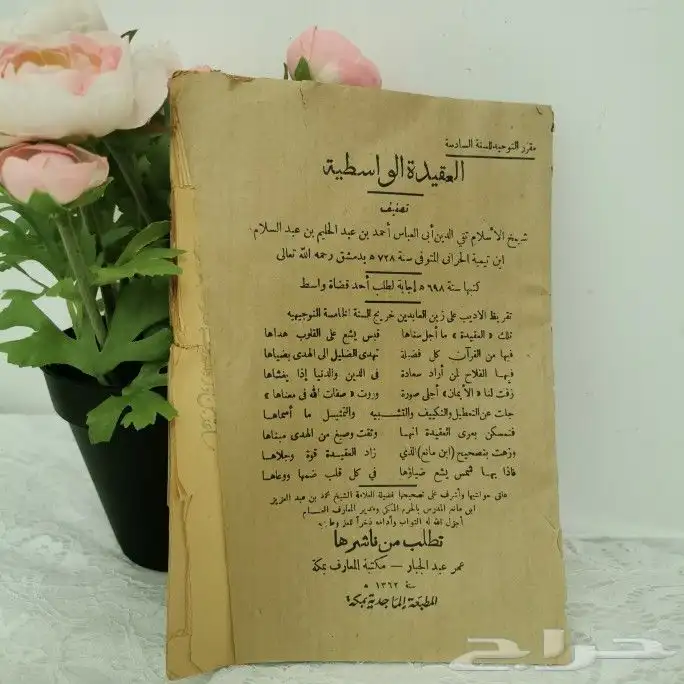 مقرر التوحيد للسنة السادسة
العقيدة الواسطية
تصنيف
شيخ الأسلام تقي الدين أبى العباس أحمد بن عبد الحليم بن عبد السلام
ابن تيمية الحرانى المتوفى سنة ٧٢٨ ه بدمشق رحمه الله تعالى
كتبها سنة ٦٩٨ ه إجابة لطلب أحد قضاة واسط
تقريظ الاديب على زين العابدين خريج السنة الخامسة التوجيهيه
تلك « العقيدة » ما أجل سناها قبس يشع على القلوب هداها
فيها من القرآن كل فضيلة تهدى الضليل الى الهدى بضياها
فيها الفلاح لمن أراد سعادة فى الدين والدنيا إذا يغشاها
زفت لنا « الأيمان » أجلى صورة وروت « صفات الله فى معناها »
جلت عن التعطيل والتكييف والتشبيه والتمثيل ما أسماها
فتمسكن بعرى العقيدة انها وثقت وصيغ من الهدى مبناها
وزهت بتصحيح (ابن مانع) الذي زاد العقيدة قوة وجلاها
فاذا بها شمس يشع ضياؤها في كل قلب ضمها ووعاها
علق حواشيها وأشرف على تصحيحها فضيلة العلامة الشيخ محمد بن عبد العزيز
ابن مانع المدرس بالحرم المكى ومدير المعارف العام
أجزل الله له الثواب وأدامه ذخراً للعلم
تطلب من ناشرها
عمر عبد الجبار — مكتبة المعارف بمكة
سنة ١٣٦٢ ه
المطبعة الماجدية بمكة
حراج